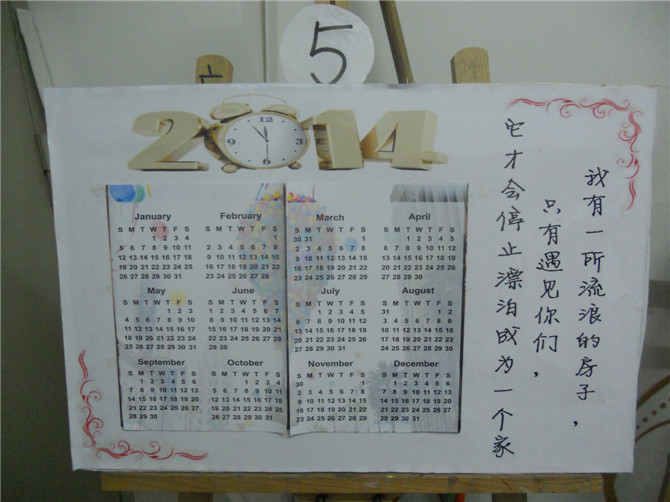 5
2014
12
9 3
6
January
S M T W T F S
1 2 3 4
5 6 7 8 9 10 11
12 13 14 15 16 17 18
19 20 21 22 23 24 25
26 27 28 29 30 31
February
S M T W T F S
1
2 3 4 5 6 7 8
9 10 11 12 13 14 15
16 17 18 19 20 21 22
23 24 25 26 27 28
March
S M T W T F S
30 31 1
2 3 4 5 6 7 8
9 10 11 12 13 14 15
16 17 18 19 20 21 22
23 24 25 26 27 28 29
April
S M T W T F S
1 2 3 4 5
6 7 8 9 10 11 12
13 14 15 16 17 18 19
20 21 22 23 24 25 26
27 28 29 30
May
S M T W T F S
1 2 3
4 5 6 7 8 9 10
11 12 13 14 15 16 17
18 19 20 21 22 23 24
25 26 27 28 29 30 31
June
S M T W T F S
1 2 3 4 5 6 7
8 9 10 11 12 13 14
15 16 17 18 19 20 21
22 23 24 25 26 27 28
29 30
July
S M T W T F S
1 2 3 4 5
6 7 8 9 10 11 12
13 14 15 16 17 18 19
20 21 22 23 24 25 26
27 28 29 30 31
August
S M T W T F S
31 1 2
3 4 5 6 7 8 9
10 11 12 13 14 15 16
17 18 19 20 21 22 23
24 25 26 27 28 29 30
September
S M T W T F S
1 2 3 4 5 6
7 8 9 10 11 12 13
14 15 16 17 18 19 20
21 22 23 24 25 26 27
28 29 30
October
S M T W T F S
1 2 3 4
5 6 7 8 9 10 11
12 13 14 15 16 17 18
19 20 21 22 23 24 25
26 27 28 29 30 31
November
S M T W T F S
30 1
2 3 4 5 6 7 8
9 10 11 12 13 14 15
16 17 18 19 20 21 22
23 24 25 26 27 28 29
December
S M T W T F S
1 2 3 4 5 6
7 8 9 10 11 12 13
14 15 16 17 18 19 20
21 22 23 24 25 26 27
28 29 30 31
我有一所流浪的房子，
只有遇见你们，
它才会停止漂泊成为一个家